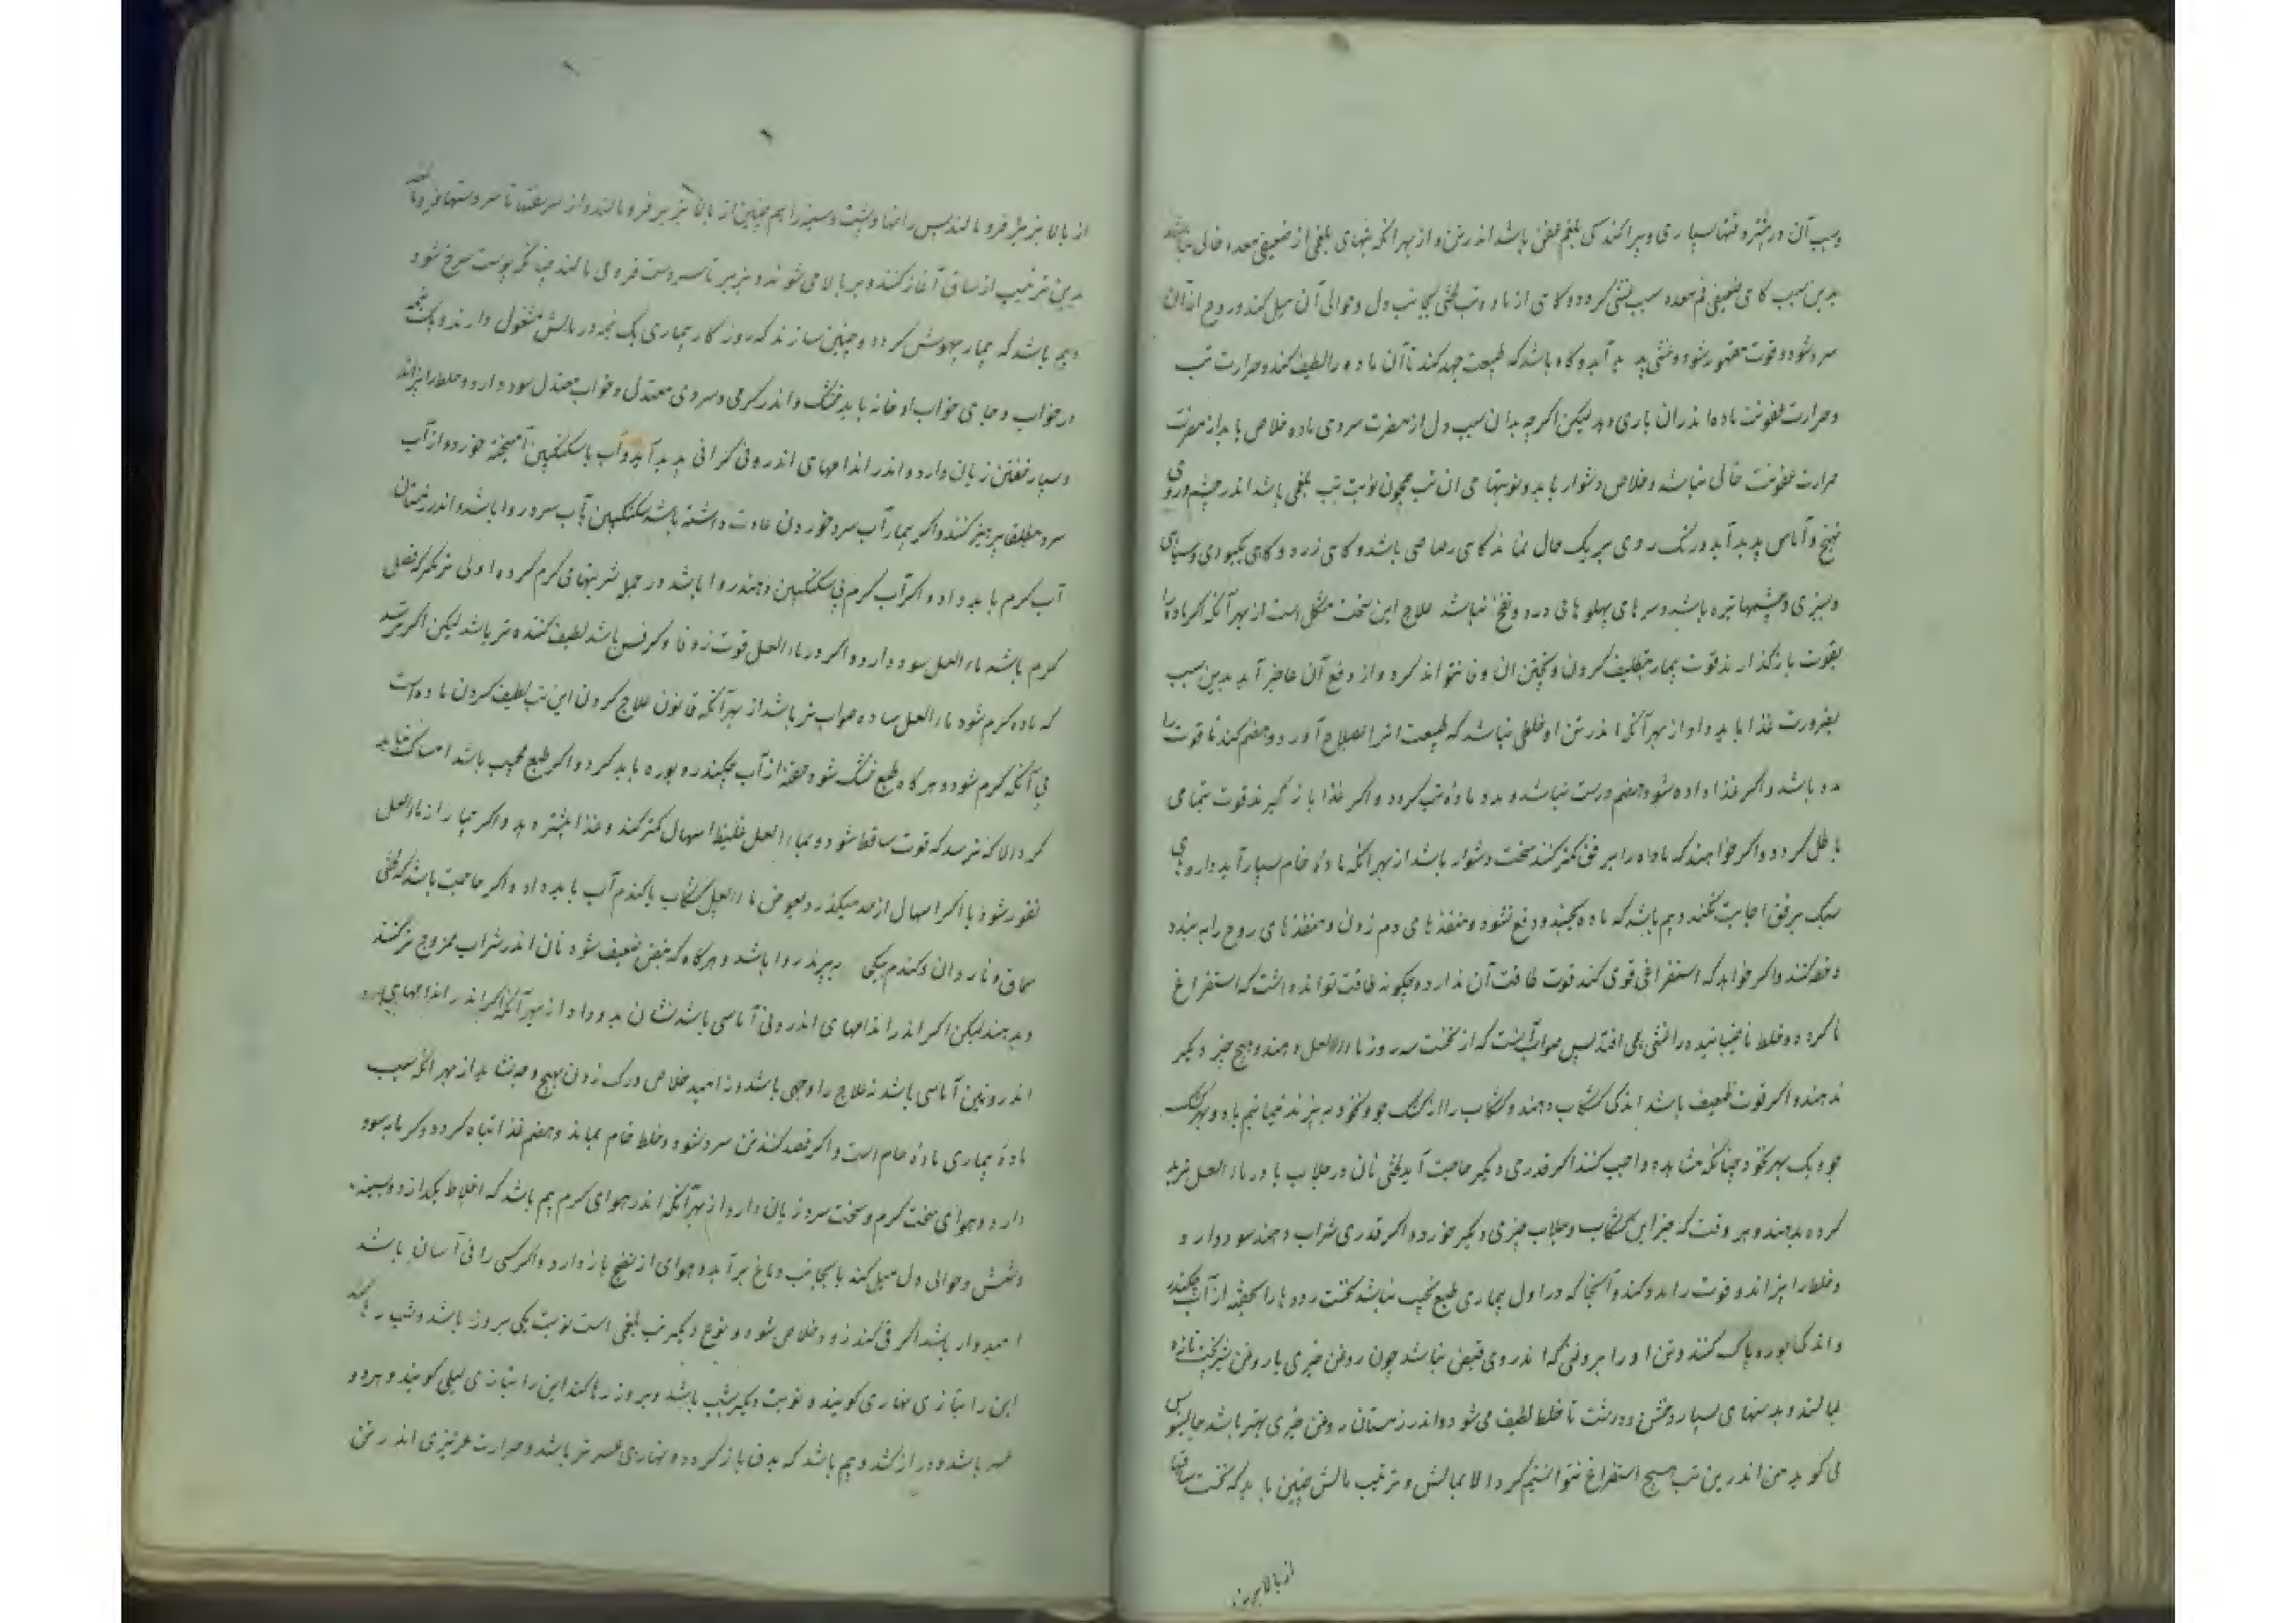 وسبب آن در بیشتر وقتها بسیاری و پراکندگی بلغم عفن باشد اندر تن و از بهر آنکه تبهای بلغمی از ضعیفی معده خالی نباشد
بدین سبب گاهی ضعیفی فم معده سبب غشی گردد و گاهی از ماده تب لختی بجانب دل و حوالی آن میل کند و روح از آن
سرد شود و قوت مقهور شود و غشی پدید آید و گاه باشد که طبیعت جهد کند تا آن ماده را لطیف کند و حرارت تب
و حرارت عفونت ماده اندران یاری دهد لیکن اگرچه بدان سبب دل از مضرت سردی ماده خلاص یابد از مضرت
حرارت عفونت خالی نباشد و خلاص دشوار یابد و نوبتهای ان تب همچون نوبت تب بلغمی باشد اندر چشم و روی
تهبج و آماس پدید آید و رنگ روی بر یک حال نماند گاهی رصاصی باشد و گاهی زرد و گاهی بکبودی و سیاهی
و سبزی و چشمها تیره باشد و سرهای پهلوها بی درد و نفخ نباشد علاج این سخت مشکل است از بهر آنکه اگر ماده را
بقوت بازگذارند قوت بیمار بتلطیف کردن و پختن ان وفا نتواند کرد و از دفع آن عاجز آید بدین سبب
بضرورت غذا باید داد از بهر آنکه اندر تن او خلطی نباشد که طبیعت انرا بصلاح آورد و هضم کند تا قوت را
مدد باشد و اگر غذا داده شود هضم درست نباشد و مدد ماده تب گردد و اگر غذا بازگیرند قوت بتمامی
باطل گردد و اگر خواهند که ماده را برفق کمتر کنند سخت دشوار باشد از بهر آنکه ماده خام بسیار آید داروهای
سبک برفق اجابت نکند و بیم باشد که ماده بجنبد و دفع نشود و منفذهای دم زدن و منفذهای روح را ببندد
و خفه کند و اگر خواهد که استفراغی قوی کند قوت طاقت آن ندارد و چگونه طاقت تواند داشت که استفراغ
ناکرده و خلط ناجنبانیده را غشی همی افتد پس صواب آنست که از نخست سه روز ماء العسل دهند و هیچ چیز دیگر
ندهند و اگر قوت ضعیف باشد اندکی کشکاب دهند و کشکاب را از کشک جو و نخود بپزند
جو و یک بهر نخود چنانکه مشاهده واجب کند اگر قدری دیگر حاجت آید لختی نان در جلاب یا در ماء العسل ترید
کرده بدهند و هر وقت که جز این کشکاب و جلاب چیزی دیگر خورد و اگر قدری شراب دهند سود دارد
و خلط را بپزاند و قوت را مدد کند و آنجا که در اول بیماری طبع مجیب نباشد نخست روده را بحقنه از آب چکندر
و اندکی بوره پاک کنند و تن او را بروغنی که اندر وی قبض نباشد چون روغن خیری یا روغن شیرپخت تازه
بمالند و بدستهای بسیار و خشن و درشت تا خلط لطیف می شود و اندر زمستان روغن خیری بهتر باشد جالینوس
می گوید من اندرین تب هیچ استفراغ نتوانستیم کرد الا بمالش و ترتیب مالش چنین باید که نخست ساقها
از بالا بزیر
از بالا بزیر فرو مالند پس رانها و پشت و سینه را هم چنین از بالا بزیر فرو مالند و از سر کتف تا سر دستها فرو مالند
بدین ترتیب از ساق آغاز کنند و بر بالا می شوند و بزیر تا سر دست فرو می مالند چنانکه پوست سرخ شود
و بیم باشد که بیمار بیهوش گردد و چنین سازند که روزگار بیماری یک نیمه در مالش مشغول دارند و یک نیمه
در خواب و جای خواب او خانه باید خشک و اندر گرمی و سردی معتدل و خواب معتدل سود دارد و خلط را بپزاند
و بسیار خفتن زیان دارد و اندر اندامهای اندرونی گرانی پدید آید و آب با سکنگبین آمیخته خورد و از آب
سرد مطلقا پرهیز کند و اگر بیمار آب سرد خوردن عادت داشته باشد سکنگبین بآب سرد روا باشد و اندر زمستان
آب گرم باید داد و اگر آب گرم بی سکنگبین دهند روا باشد در جمله شربتها می گرم کرده اولی تر مگر که فصل
گرم باشد ماء العسل سود دارد و اگر در ماء العسل قوت زوفا و کرفس باشد لطیف کننده تر باشد لیکن اگر ترسند
که ماده گرم شود ماء العسل ساده صواب تر باشد از بهر آنکه قانون علاج کردن این تب لطیف کردن ماده است
بی آنکه گرم شود و هر گاه طبع خشک شود حقنه از آب چکندر و بوره باید کرد و اگر طبع مجیب باشد امساک نباید
کرد الا که ترسد که قوت ساقط شود و بماء العسل غلیظ اسهال کمتر کند و غذا بیشتر دهد و اگر بیمار از ماء العسل
نفور شود یا اگر اسهال از حد میگذرد بعوض ماء العسل کشکاب یا گندم آب باید داد و اگر حاجت باشد که لختی
سماق و ناردان و گندم بپزند روا باشد و هر گاه که نبض ضعیف شود نان اندر شراب ممزوج تر کنند
و بدهند لیکن اگر اندر اندامهای اندرونی آماسی باشد نشاید داد از بهر آنکه اگر اندر اندامهای
اندرونین آماسی باشد نه علاج را وجهی باشد و نه امید خلاص و رگ زدن بهیچ وجه نشاید از بهر آنکه سبب
ماده بیماری ماده خام است و اگر فصد کنند تن سرد شود و خلط خام بماند و هضم غذا تباه گردد و گرمابه سود
دارد و هوای سخت گرم و سخت سرد زیان دارد از بهر آنکه اندر هوای گرم بیم باشد که اخلاط بگدازد و بسینه
و شش و حوالی دل میل کند یا بجانب دماغ برآید و هوای از نضج باز دارد و اگر کسی را قی آسان باشد
امیدوار باشد اگر قی کند زود خلاص شود و نوع دیگر تب بلغمی است نوبت یکی بروز باشد و شب رها کند
این را بتازی نهاری گویند و نوبت دیگر بشب باشد و بروز رها کند این را بتازی لیلی گویند و هر دو
عسر باشد و دراز کشد و بیم باشد که بدق باز گردد و نهاری عسر تر باشد و حرارت غریزی اندر تن